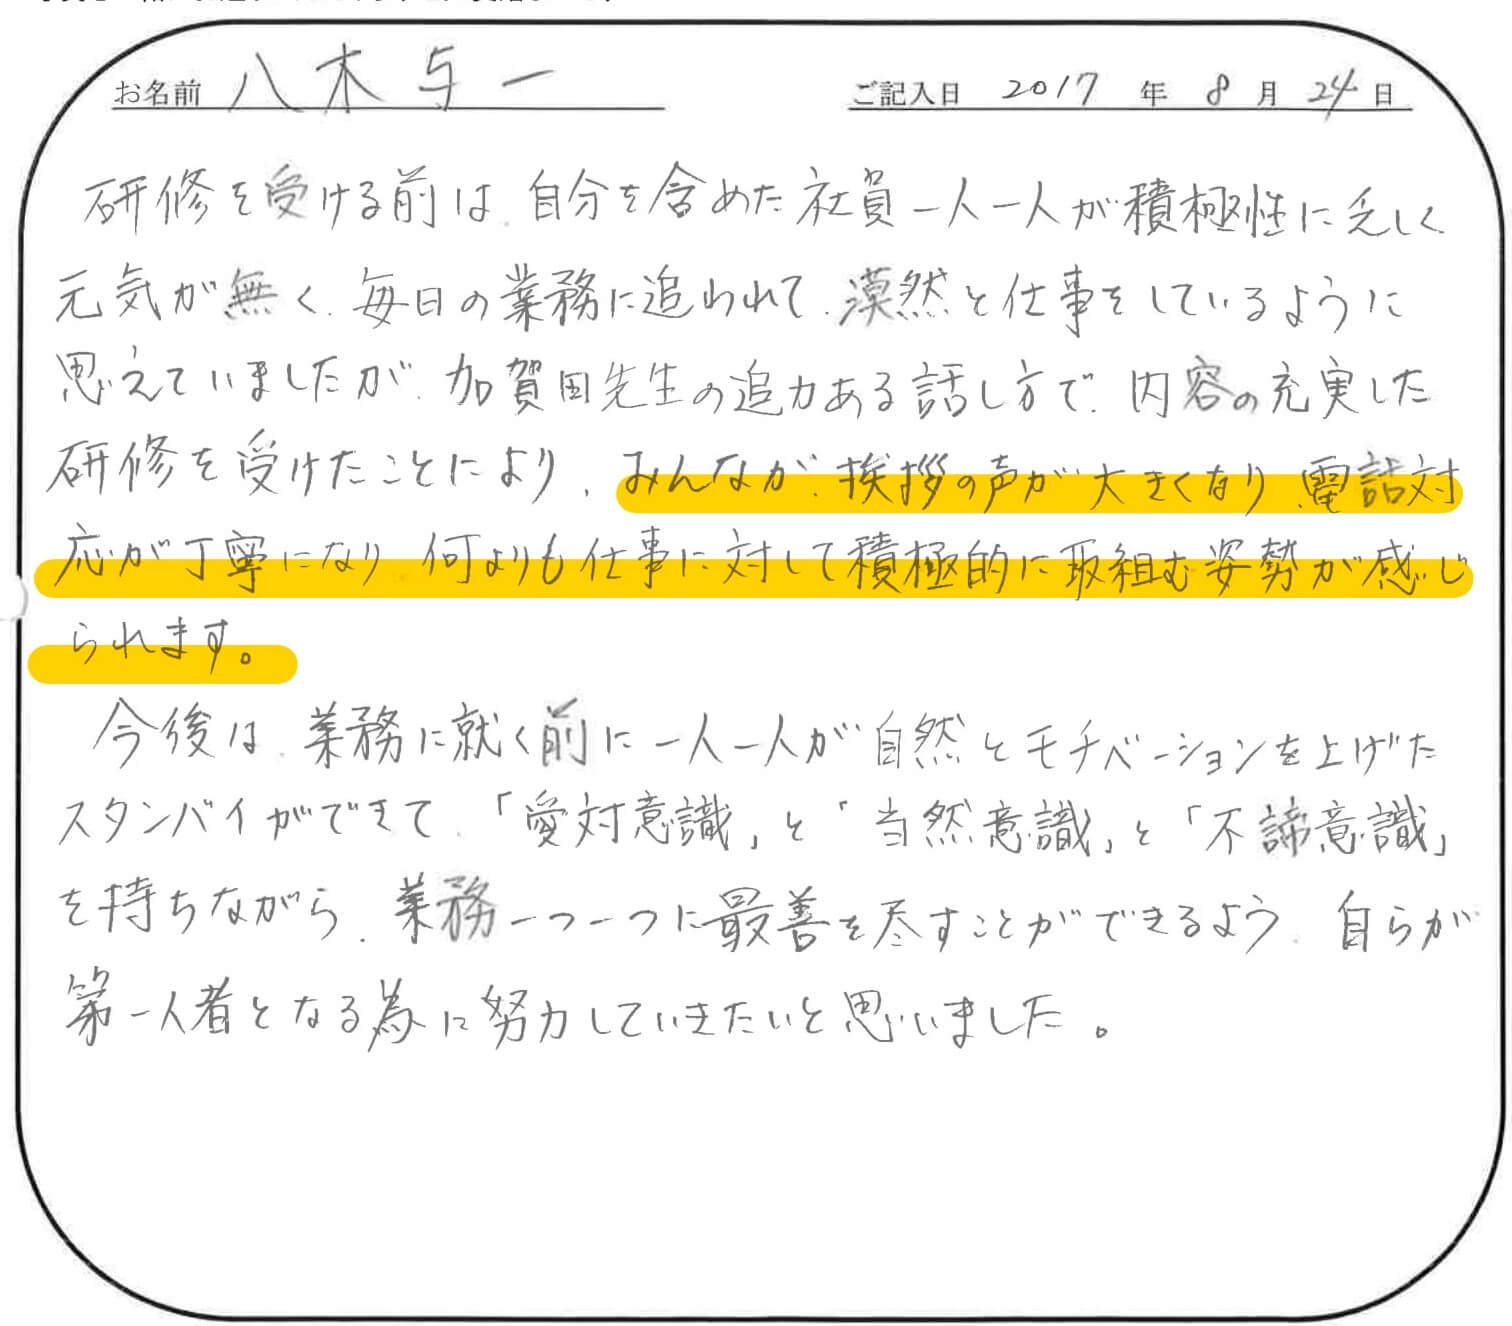 お名前 八木与一 ご記入日 2017 年 8 月 24 日
研修を受ける前は、自分を含めた社員一人一人が積極性に乏しく、
元気が無く、毎日の業務に追われて、漠然と仕事をしているように
思えていましたが、加賀田先生の迫力ある話し方で、内容の充実した
研修を受けたことにより、みんなが、挨拶の声が大きくなり、電話対
応が丁寧になり、何よりも仕事に対して積極的に取組む姿勢が感じ
られます。
今後は、業務に就く前に一人一人が自然とモチベーションを上げた
スタンバイができて、「愛対意識」と「当然意識」と「不諦意識」
を持ちながら、業務一つ一つに最善を尽すことができるよう、自らが
第一人者となる為に努力していきたいと思いました。